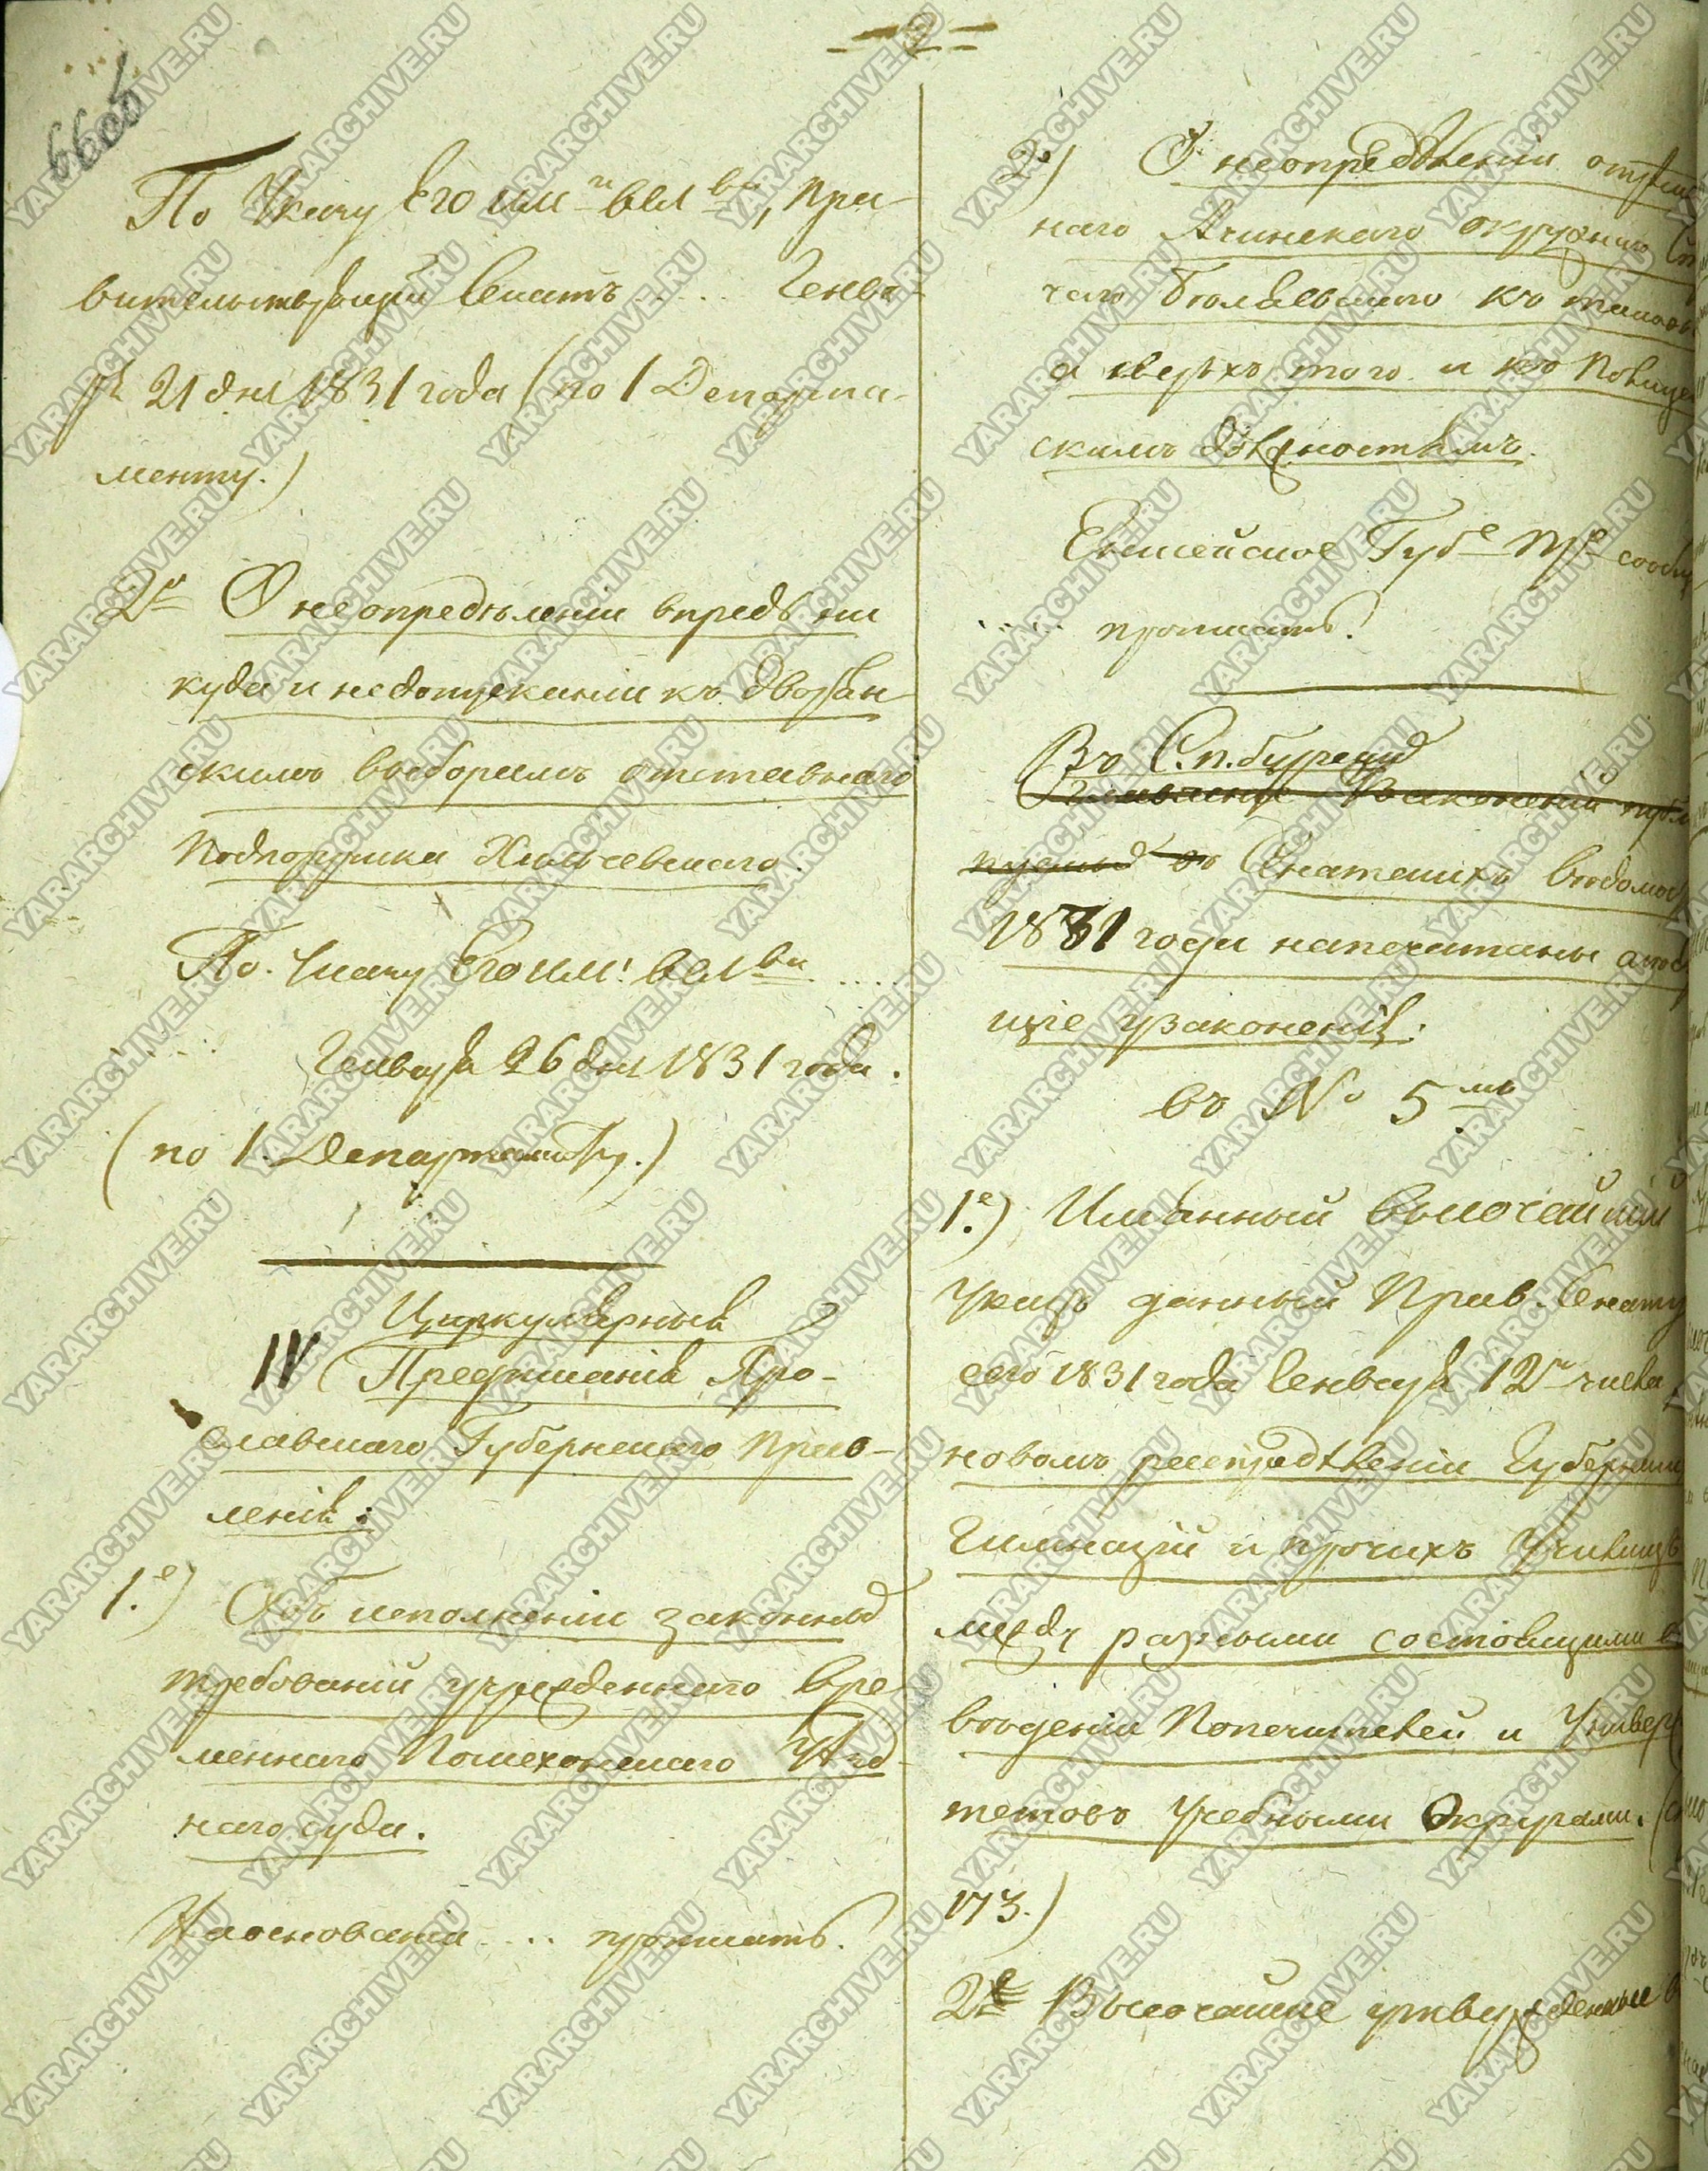 2
По Указу Его Имп. Вел-ва, Пра-
вительствующій Сенатъ ..... Генва-
ря 21 дня 1831 года (по 1 Департа-
менту.)
2е О неопредѣленіи впредь ни
куда и недопусканіи къ дворян-
скимъ выборамъ отставнаго
Подпоручика
По Указу Его Имп. Вел-ва .....
..... Генваря 26 дня 1831 года.
(по 1. Департаменту.)
Циркулярныя
IV Предписанія Яро-
славскаго Губернскаго Прав-
ленія:
1.е) Объ исполненіи законныхъ
требованій учрежденнаго вре
меннаго Пошехонскаго Уѣзд-
наго суда.
На основаніи .... прописать.
2е) О неопредѣленіи отстав
наго Ачинскаго окружнаго
чаго къ таковы
а сверхъ того и къ Полицей
скимъ должностямъ.
Енисейское Губе Пре сооб
..... прописать.
Въ С.п.бургскихъ
въ Сенатскихъ Вѣдомос
1831 года напечатаны слѣд
щіе узаконенія:
въ № 5мъ
1.е) Имянный Высочайшій
Указъ данный Прав. Сенату
сего 1831 года Генваря 12го числа
новомъ распредѣленіи Губернскихъ
Гимназій и прочихъ Училищъ
между разными состоящими в
вѣденіи Попечителей и Универс
тетовъ Учебными Округами. (
173.)
2е Высочайше утвержденные